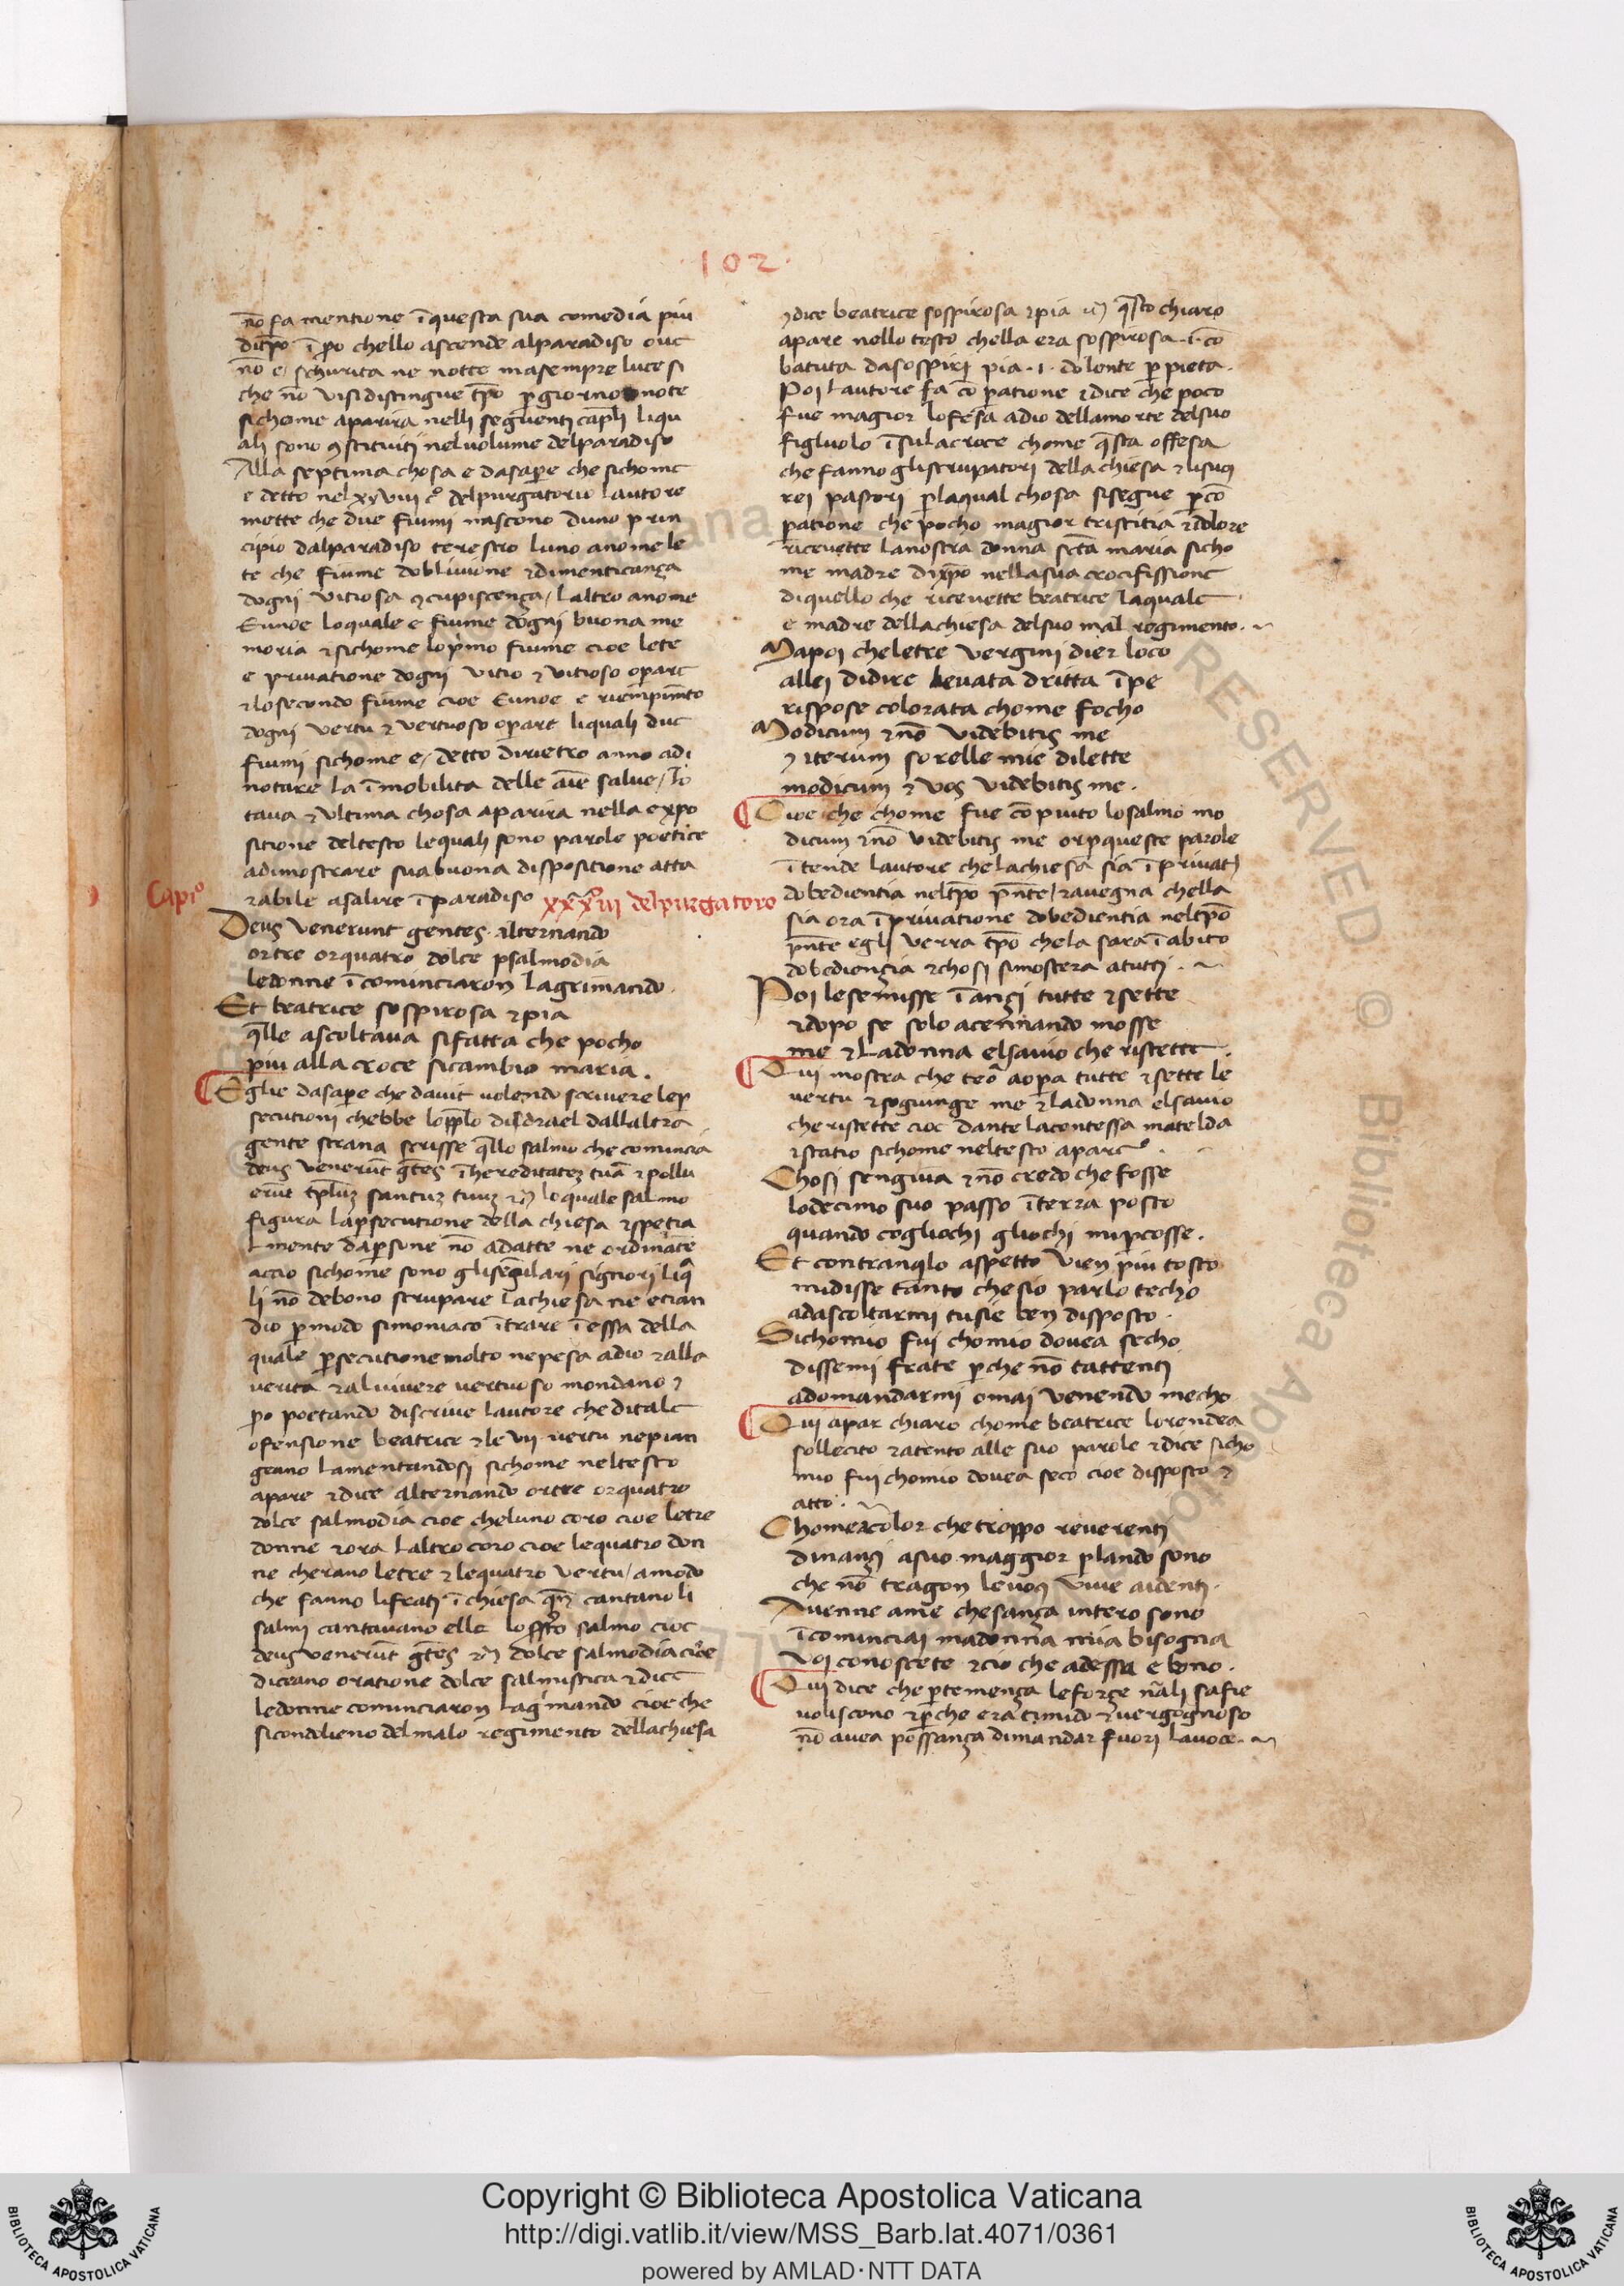 102
nō fa mentione ī questa sua comedia piu
di tp̄o ī p̄o chello ascende al paradiso oue
nō e schurita ne notte ma sempre luce si
che nō visi distingue tp̄o p giorno o note
sichome aparira nelli seguenti capłi liqu
ali sono ꝯstituiti nel volume del paradiso
Alla septima chosa e da sapere che sichome
e detto nel xxviii cº del purgatorio lautore
mette che due fiumi nascono duno prin
cipio dal paradiso terestro luno anome le
te che fiume doblivione ⁊ dimenticança
dogni vitiosa ꝯcupiscença / laltro anome
Eunoe loquale e fiume dogni buona me
moria ⁊ sichome lo p̓mo fiume cioe lete
e privatione dogni vitio ⁊ vitioso opare
⁊ lo secondo fiume cioe Eunoe e riempimt̄o
dogni vertu ⁊ vertuoso opare liquali due
fiumi sichome e detto dirietro anno adi
notare la īmobilita delle aīe salue / lo
taua ⁊ ultima chosa aparira nella expo
sitione del testo lequali sono parole poetice
adimostrare sua buona dispositione atta
⁊ abile a salire ī paradiso
Capiº xxxiii del purgatoro
Deus venerunt gentes alternando
or tre or quatro dolce psalmodia
le donne ī cominciaron lagrimando.
Et beatrice sospirosa ⁊ pia
q̄lle ascoltaua si fatta che pocho
piu alla croce si cambio maria.
Eglie da sapere che dauit uolendo scrivere le p̱
secutioni chebbe lo pp̄lo disdrael dallaltra
gente strana scrisse q̄llo salmo che comincia
deus venerūt gt̄es ī hereditateʒ tuā ⁊ pollu
erūt tp̄luʒ santuʒ tuuʒ ⁊c̄ loquale salmo
figura la p̱secutione della chiesa ⁊ spetia
lmente da p̱sone nō adatte ne ordinate
accio sichome sono gli segulari signori liq̄
li nō debono strupare la chiesa ne etian
dio p̱ modo simoniaco ītrare ī essa della
quale p̱secutione molto ne pesa adio ⁊ alla
verita ⁊ al vivere vertuoso mondano ⁊
p̱o poetando discrive lautore che di tale
ofensione beatrice ⁊ le vii vertu ne pian
geano lamentandosi sichome nel testo
apare ⁊ dice alternando or tre or quatro
dolce salmodia cioe che luno coro cioe le tre
donne ⁊ ora laltro coro cioe le quatro don
ne cherano le tre ⁊ le quatro vertu / amodo
che fanno li frati ī chiesa qn̄ cantano li
salmi cantavano elle lo sſto salmo cioe
deus venerūt gt̄es ⁊c̄ dolce salmodia cioe
diceano oratione dolce salmistica ⁊ dice
le donne cominciaron lag̓mando cioe che
si condolieno del malo regimento della chiesa
⁊ dice beatrice sospirosa ⁊ pia ⁊c̄ q̄sto chiaro
apare nello testo chella era sospirosa .i. cō
batuta da sospiri pia .i. dolente p̱ pieta.
Poi lautore fa cōpatione ⁊ dice che poco
fue magior lofesa adio della morte del suo
figluolo ī sula croce chome q̄sta offesa
che fanno gli strupatori della chiesa ⁊ li suoi
rei pastori p̱ laqual chosa si segue p̱ cō
p̱atione che pocho magior tristitia ⁊ dolore
ricevette la nostra donna sc̄ta maria sicho
me madre di xp̄o nella sua crocifissione
di quello che ricevette beatrice laquale
e madre della chiesa del suo mal regimento.
Ma poi che le tre vergini dier loco
allei di dire levata dritta ī pe
rispose colorata chome focho
Modicum ⁊ nō videbitis me
⁊ iterum sorelle mie dilette
modicum ⁊ vos videbitis me.
Cioe che chome fue cōpiuto lo salmo mo
dicum ⁊ nō videbitis me or p̱ queste parole
ī tende lautore che la chiesa sia ī privat
dobedientia nel tp̄o pn̄te / ⁊ avegna chella
sia ora ī privatione dobedientia nel tp̄o
pn̄te egli verra tp̄o che la sara ī abito
dobediençia ⁊ chosi si mostera a tutti.
Poi le semisse ī ançi tutte ⁊ sette
⁊ dopo se solo acennando mosse
me ⁊ la donna el savio che ristette.
Qui mostra che teoª aop̱a tutte ⁊ sette le
vertu ⁊ sogiunge me ⁊ la donna el savio
che ristette cioe dante la contessa matelda
⁊ statio sichome nel testo apare.
Chosi sen giva ⁊ nō credo che fosse
lo decimo suo passo ī terra posto
quando cogliochi gliochi mi p̱cosse.
Et con tranq̓lo aspetto vien piu tosto
mi disse tanto che sio parlo techo
ad ascoltarmi tu sie ben disposto.
Sichomio fui chomio dovea secho
dissemi frate p̱che nō tattenti
adomandarmi omai venendo mecho
Qui apar chiaro chome beatrice lo rendea
sollecito ⁊ atento alle suo parole ⁊ dice sicho
mio fui chomio dovea seco cioe disposto ⁊
atto.
Chome a color che troppo reverenti
dinançi a suo maggior p̱lando sono
che nō tragon le voci vive ai denti.
Avenne ame che sança intero sono
ī cominciai madonna mia bisogna
voi conoscete ⁊ cio che adessa e bono.
Qui dice che p̱ temença le forçe nālı safie
voliscono ⁊ p̱che era timido ⁊ vergognoso
nō avea possança di mandar fuori la voce.
Copyright © Biblioteca Apostolica Vaticana
http://digi.vatlib.it/view/MSS_Barb.lat.4071/0361
powered by AMLAD·NTT DATA
BIBLIOTECA APOSTOLICA VATICANA
BIBLIOTECA APOSTOLICA VATICANA